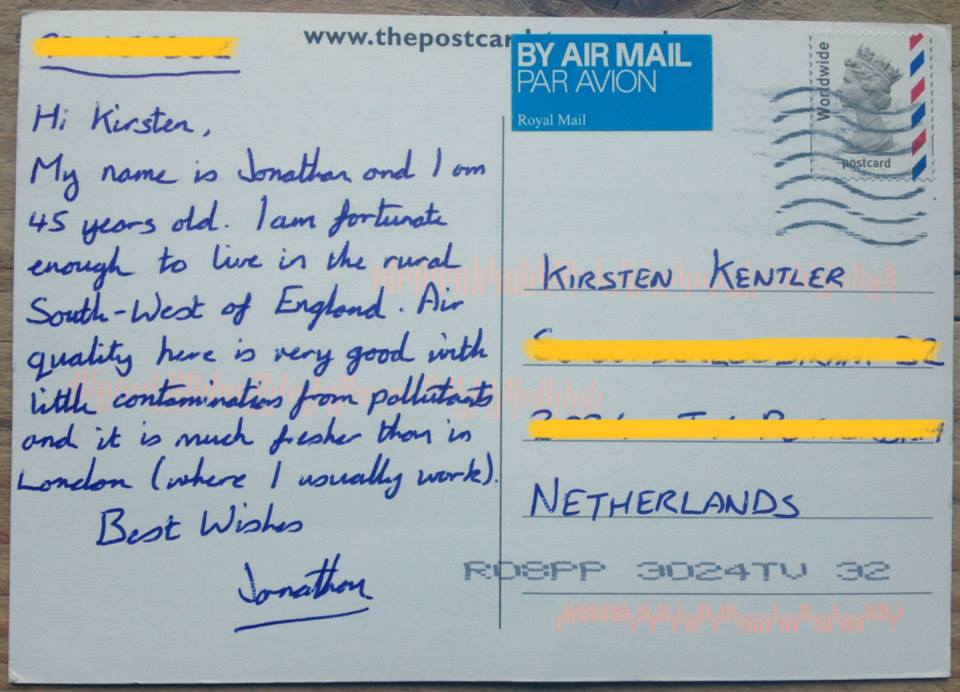 www.thepostcar
BY AIR MAIL
PAR AVION
Royal Mail
Worldwide
postcard
Hi Kirsten,
My name is Jonathan and I am
45 years old. I am fortunate
enough to live in the rural
South-West of England. Air
quality here is very good with
little contamination from pollutants
and it is much fresher than in
London (where I usually work).
Best Wishes
Jonathan
KIRSTEN KENTLER
NETHERLANDS
RD8PP 3024TV 32